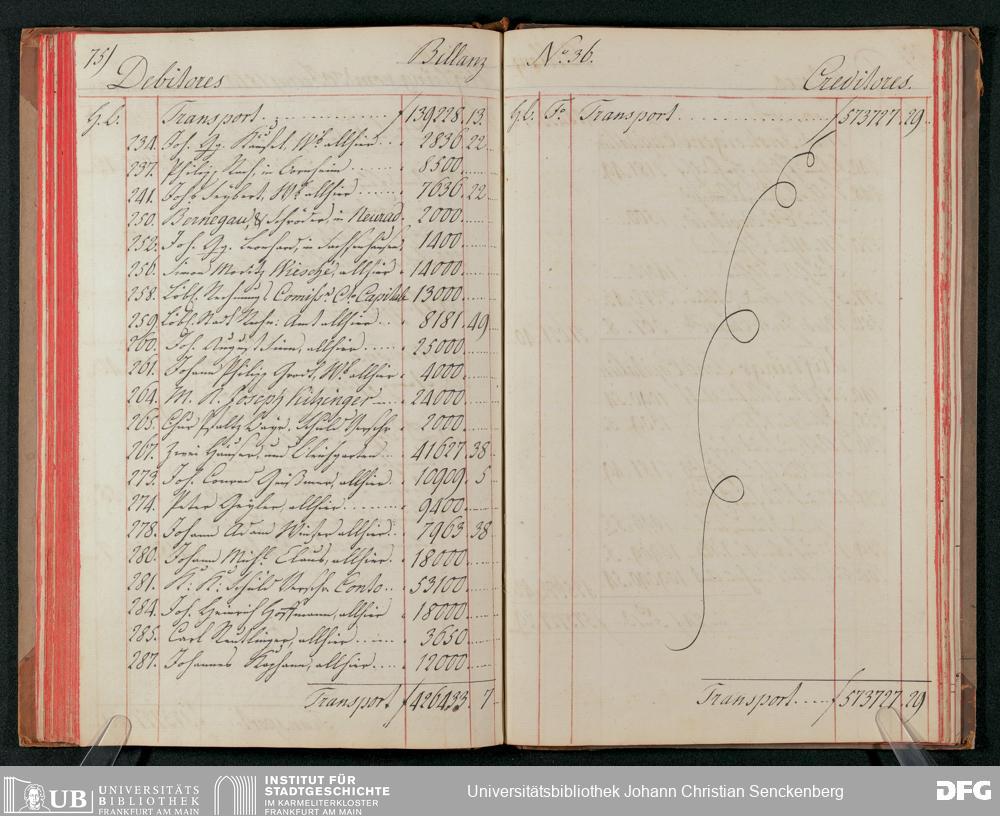 75
Debitores
Billanz
H. C. Transport f 139228.13.
234. Joh. Gg. W. allhier 2836.22
237. Philipp in 8500
241. Joh. Seybert, W. allhier 7636.22
250. Bernegau, & Schröder, in Neuwied 2000
252. Joh. Gg. Leonhard, in Sachsenhausen 1400
256. Simon Moritz Wiesche, allhier 14000
258. Löbl. Rechnungs Comiss. Capital 13000
259. Löbl. Amt allhier 8181.49
260. Joh. August allhier 25000
261. Johann Philipp W. allhier 4000
264. M. K. Joseph Kitzinger 24000
265. Chur Pfaltz Schuld Versch. 2000
267. Zwei Häuser, und Bleichgarten 41627.38
273. Joh. Conrad allhier 10909.5
274. Peter Geyler, allhier 9400
278. Johann Adam allhier 7963.38
280. Johann Mich. Claus, allhier 18000
281. K: K: Schuld Versch. Conto 53100
284. Joh. Heinrich Hoffmann, allhier 18000
285. Carl Reutlinger, allhier 3650
287. Johannes allhier 12000
Transport f 426433.7
No. 36.
Creditores.
H. C. Fo. Transport f 573727.29
Transport f 573727.29
UB UNIVERSITÄTS
BIBLIOTHEK
FRANKFURT AM MAIN
INSTITUT FÜR
STADTGESCHICHTE
IM KARMELITERKLOSTER
FRANKFURT AM MAIN
Universitätsbibliothek Johann Christian Senckenberg
DFG